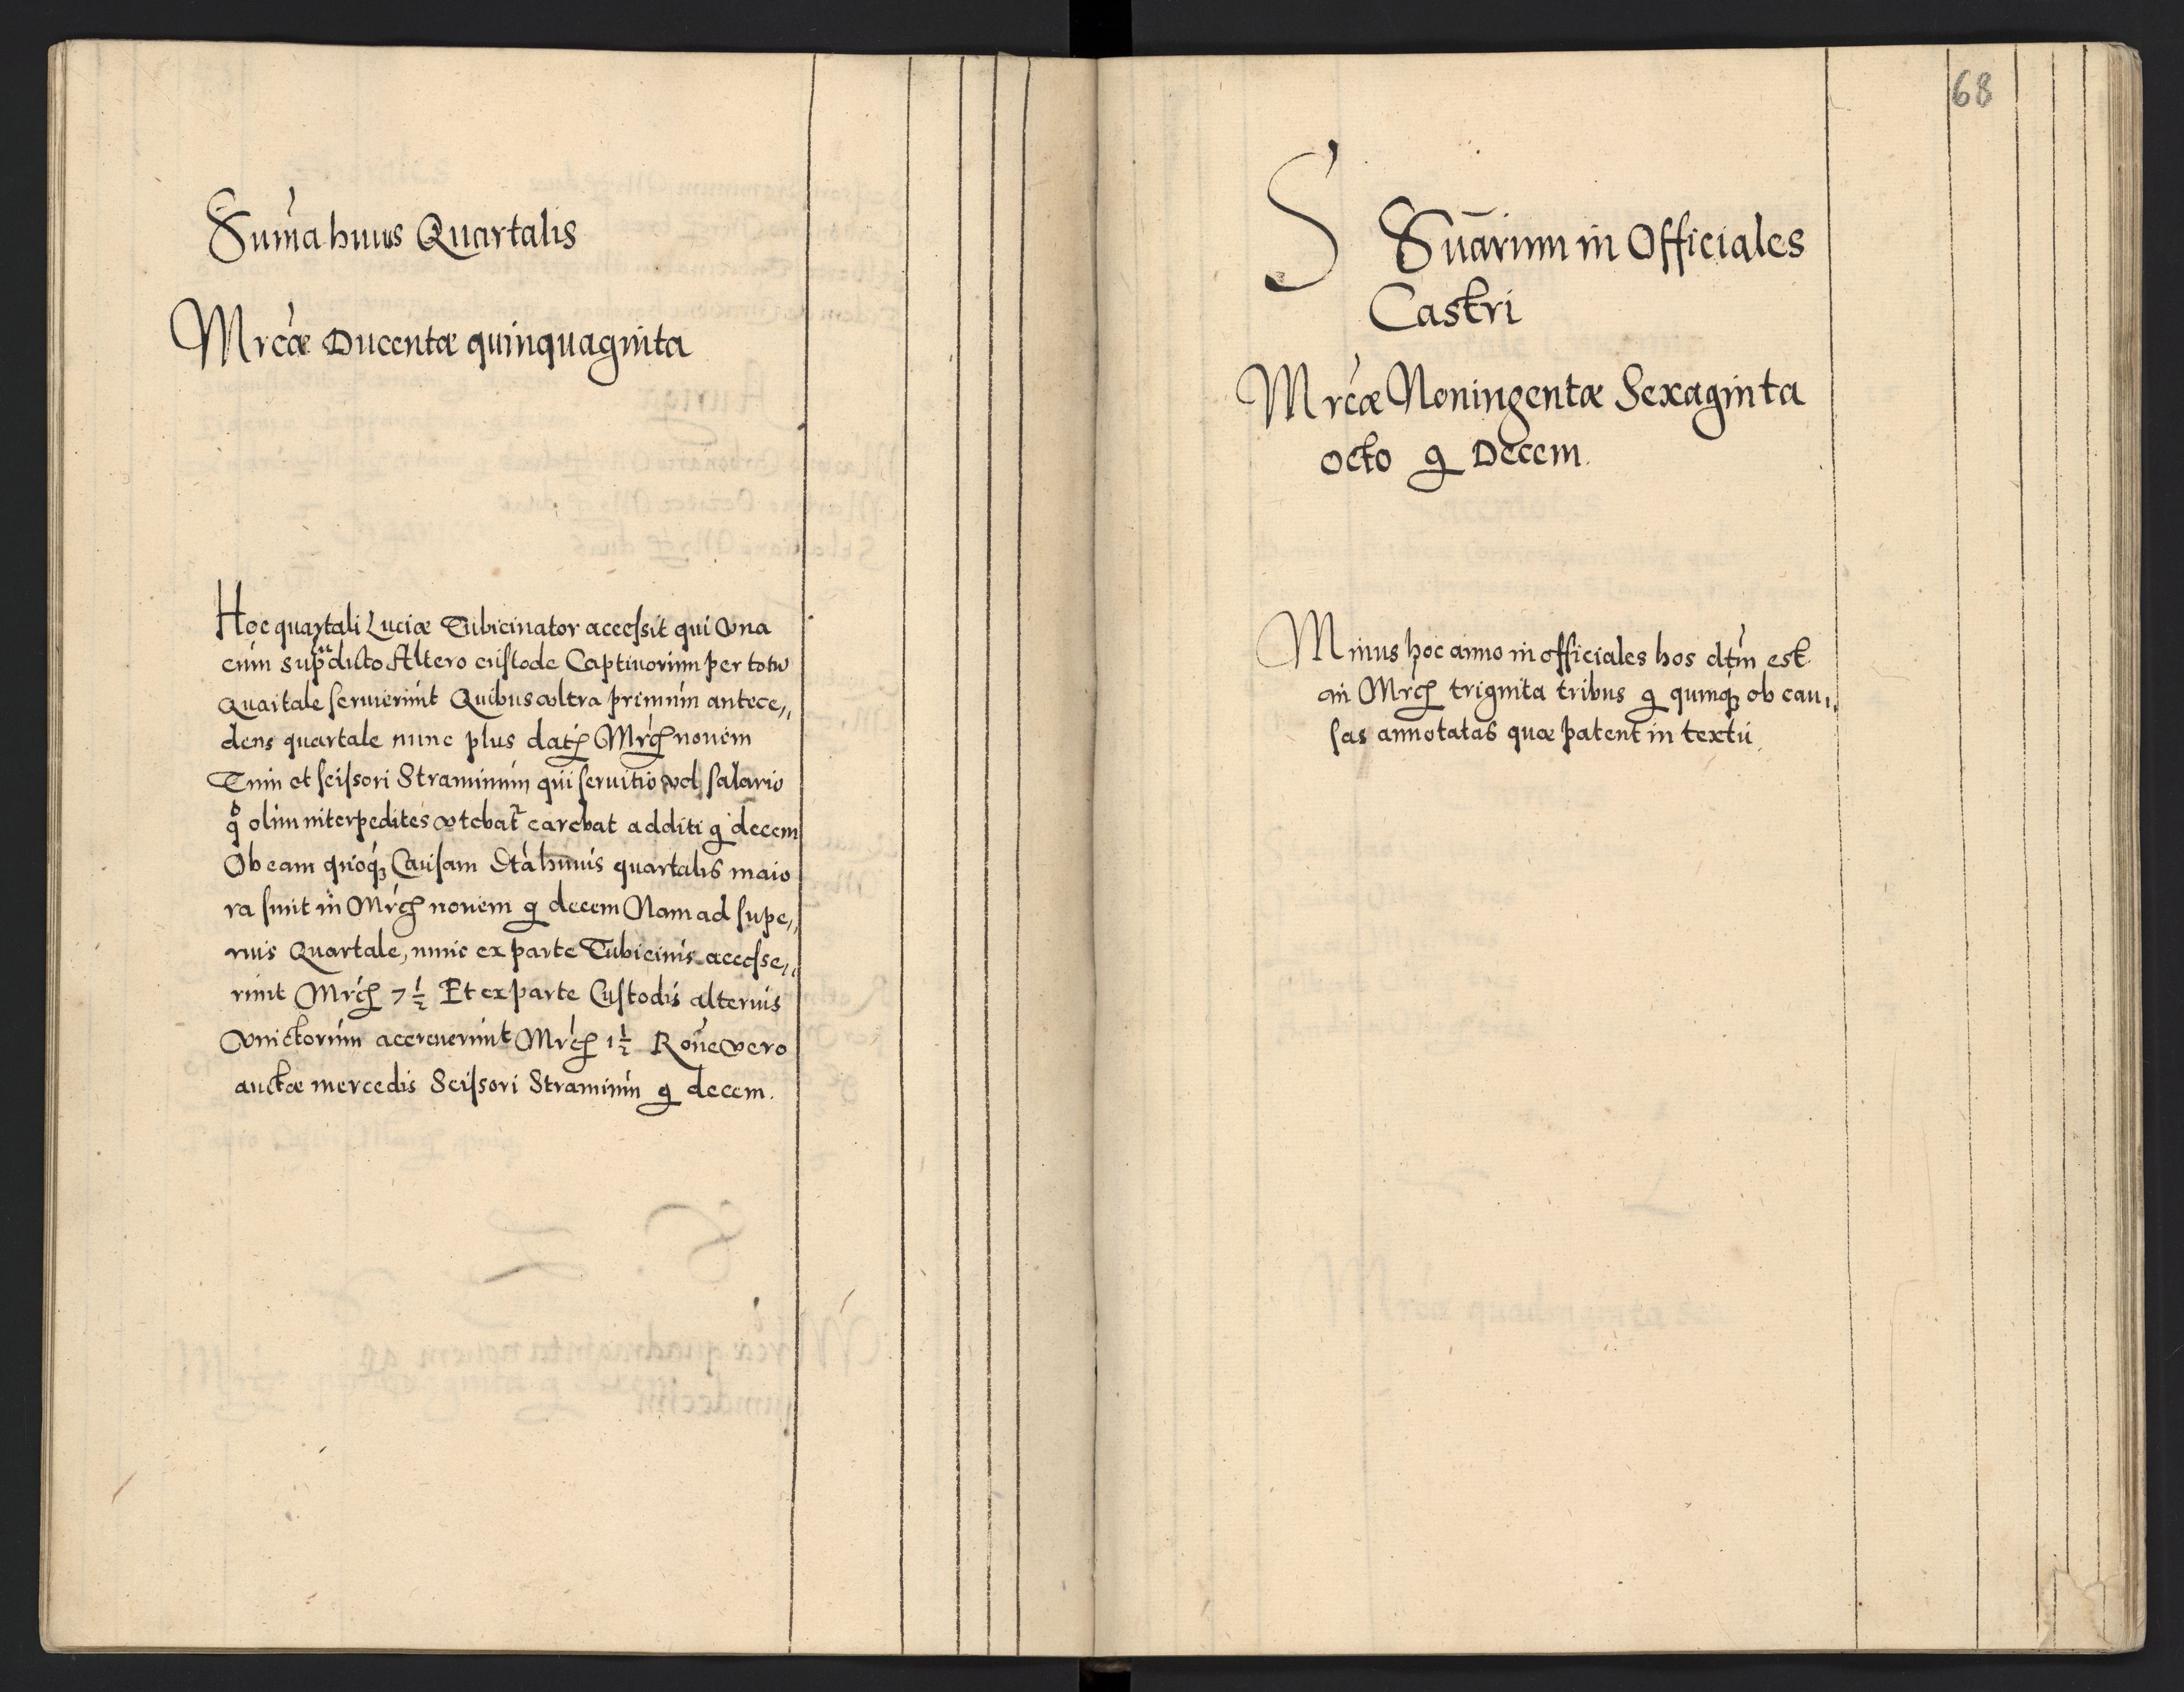 Sum̃a huius Quartalis
Mrcæ Ducentæ quinquaginta
Hoc quartali Luciæ Tubicinator accessit qui vna
cum supradicto Altero custode Captiuorum per totũ
quartale seruierunt Quibus vltra primum antece„
dens quartale nunc plus datꝭ Mrcꝭ nouem
Tum et scissori Straminum qui seruitio vel salario
qͦ olim inter pedites vtebatʳ carebat additi g decem
Ob eam quoqꝫ Causam Dta huius quartalis maio
ra sunt in Mrcꝭ nouem g decem Nam ad supe„
rius Quartale, nunc ex parte Tubicinis accesse„
runt Mrcꝭ 7 ½ Et ex parte Custodis alterius
vinctorum accreuerunt Mrcꝭ 1 ½ Rõne vero
auctæ mercedis Scissori Straminũ g decem.
68
S Sũarium in Officiales
Castri
Mrcæ Noningentæ Sexaginta
octo g Decem.
Minus hoc anno in officiales hos dtm̃ est
in Mrcꝭ triginta tribus g quinqꝫ ob cau„
sas annotatas quæ patent in textu